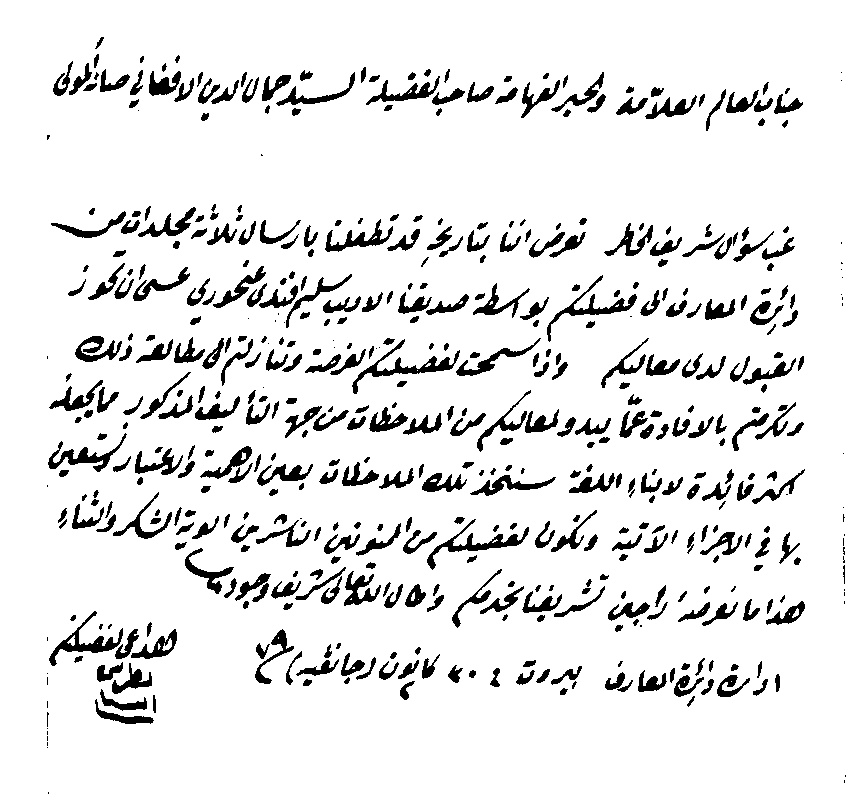 جناب العالم العلامة والحبر الفهامة صاحب الفضيلة السيد جمال الدين الافغاني صانه المولى
غب سؤال شريف الخاطر نعرض اننا بتاريخهِ قد تطفلنا بارسال ثلاثة مجلدات من
دائرة المعارف الى فضيلتكم بواسطة صديقنا الاديب سليم افندي عنحوري عسى ان تحوز
القبول لدى معاليكم واذا سمحت لفضيلتكم الفرصة وتنازلتم الى مطالعة ذلك
وتكرمتم بالافادة عمّا يبدو لمعاليكم من الملاحظات من جهة التأليف المذكور مما يجعله
اكثر فائدة لابناءِ اللغة سنتخذ تلك الملاحظات بعين الاهمية والاعتبار ونستعين
بها في الاجزاءِ الآتية ونكون لفضيلتكم من الممنونين الناشرين الوية الشكر والثناءِ
هذا ما نعرضهُ راجين تشريفنا بخدمكم واطال الله تعالى شريف وجودكم
ادارة دائرة المعارف بيروت في ٣٠ كانون (جانفيه) ٧٩
الداعي لفضيلتكم
بطرس
البستاني